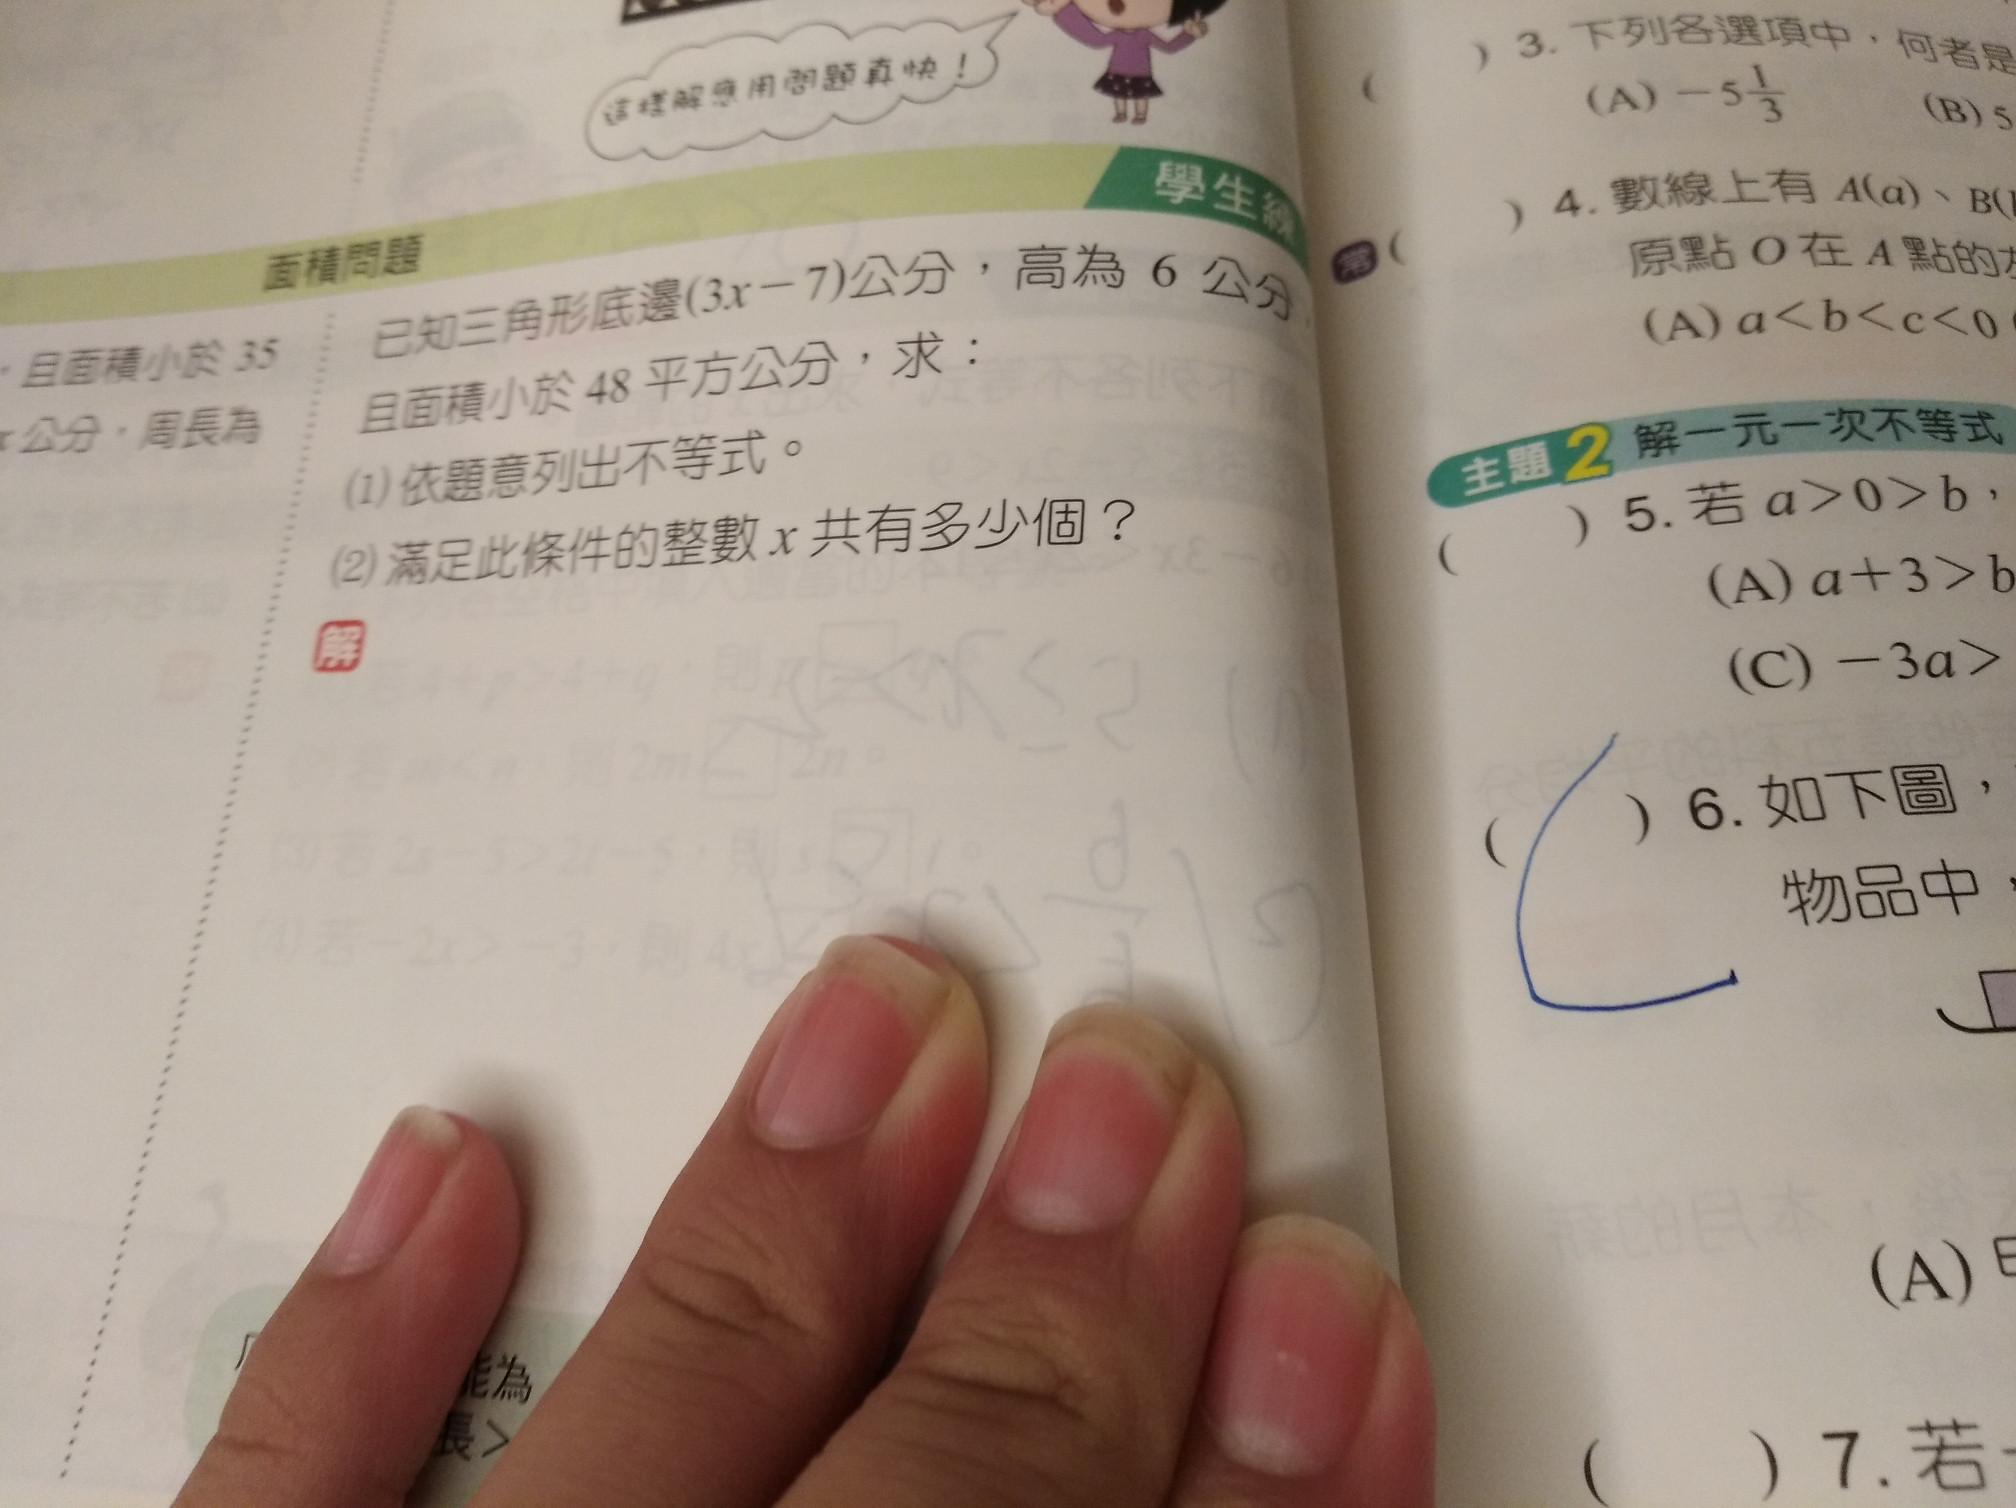 這樣解應用問題真快！
學生練
面積問題
，且面積小於 35
x 公分，周長為
已知三角形底邊(3x－7)公分，高為 6 公分，
且面積小於 48 平方公分，求：
(1) 依題意列出不等式。
(2) 滿足此條件的整數 x 共有多少個？
解
能為
長＞
( ) 3. 下列各選項中，何者是
(A) －5 1/3 (B) 5
常 ( ) 4. 數線上有 A(a)、B(
原點 O 在 A 點的
(A) a＜b＜c＜0
主題 2 解一元一次不等式
( ) 5. 若 a＞0＞b，
(A) a＋3＞b
(C) －3a＞
( ) 6. 如下圖，
物品中，
(A)
( ) 7. 若